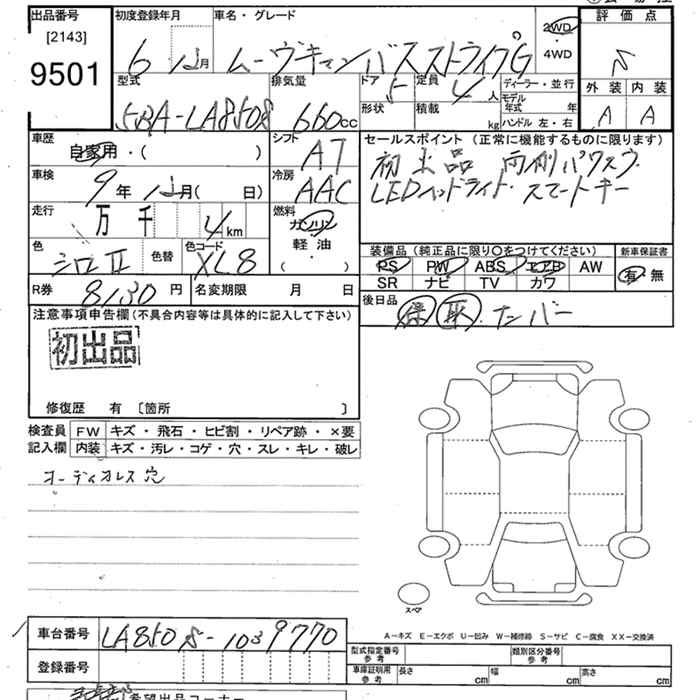 出品番号 初度登録年月 車名・グレード 2WD・4WD 評価点
[2143]
9501
6 12月 ムーヴキャンバス ストライプG S
型式 排気量 ドア 5 定員 4人 ディーラー・並行 外装 内装
形状 積載 kg モデル年式 年
5BA-LA850S 660cc ハンドル 左・右 A A
車歴 自家用・( ) シフト AT セールスポイント (正常に機能するものに限ります)
車検 9年 12月( 日) 冷房 AAC 初出品 両側パワスラ
LEDヘッドライト・スマートキー
走行 万 千 4km 燃料 ガソリン・軽油 ( ・ )
色 シロII 色替 色コード XL8 装備品(純正品に限り○をつけてください) 新車保証書
PS PW ABS エアB AW 有・無
SR ナビ TV カワ
R券 8130円 名変期限 月 日 後日品 保 取 ナンバー
注意事項申告欄(不具合内容等は具体的に記入して下さい)
初出品
修復歴 有 〔箇所 〕
検査員記入欄 FW キズ・飛石・ヒビ割・リペア跡・×要
内装 キズ・汚レ・コゲ・穴・スレ・キレ・破レ
オーディオレス穴
スペア
A−キズ E−エクボ U−凹み W−補修跡 S−サビ C−腐食 XX−交換済
車台番号 LA850S-1039770 型式指定番号 参考 類別区分番号 参考
登録番号 車庫証明用 参考 長さ cm 幅 cm 高さ cm
希望出品コーナー